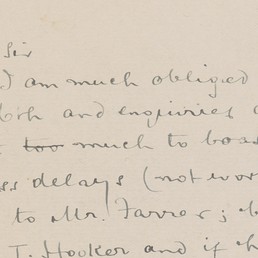 Sir
I am much obliged
and enquiries
too much to
delays (not wor
to Mr. Farrer; b
T. Hooker and if h